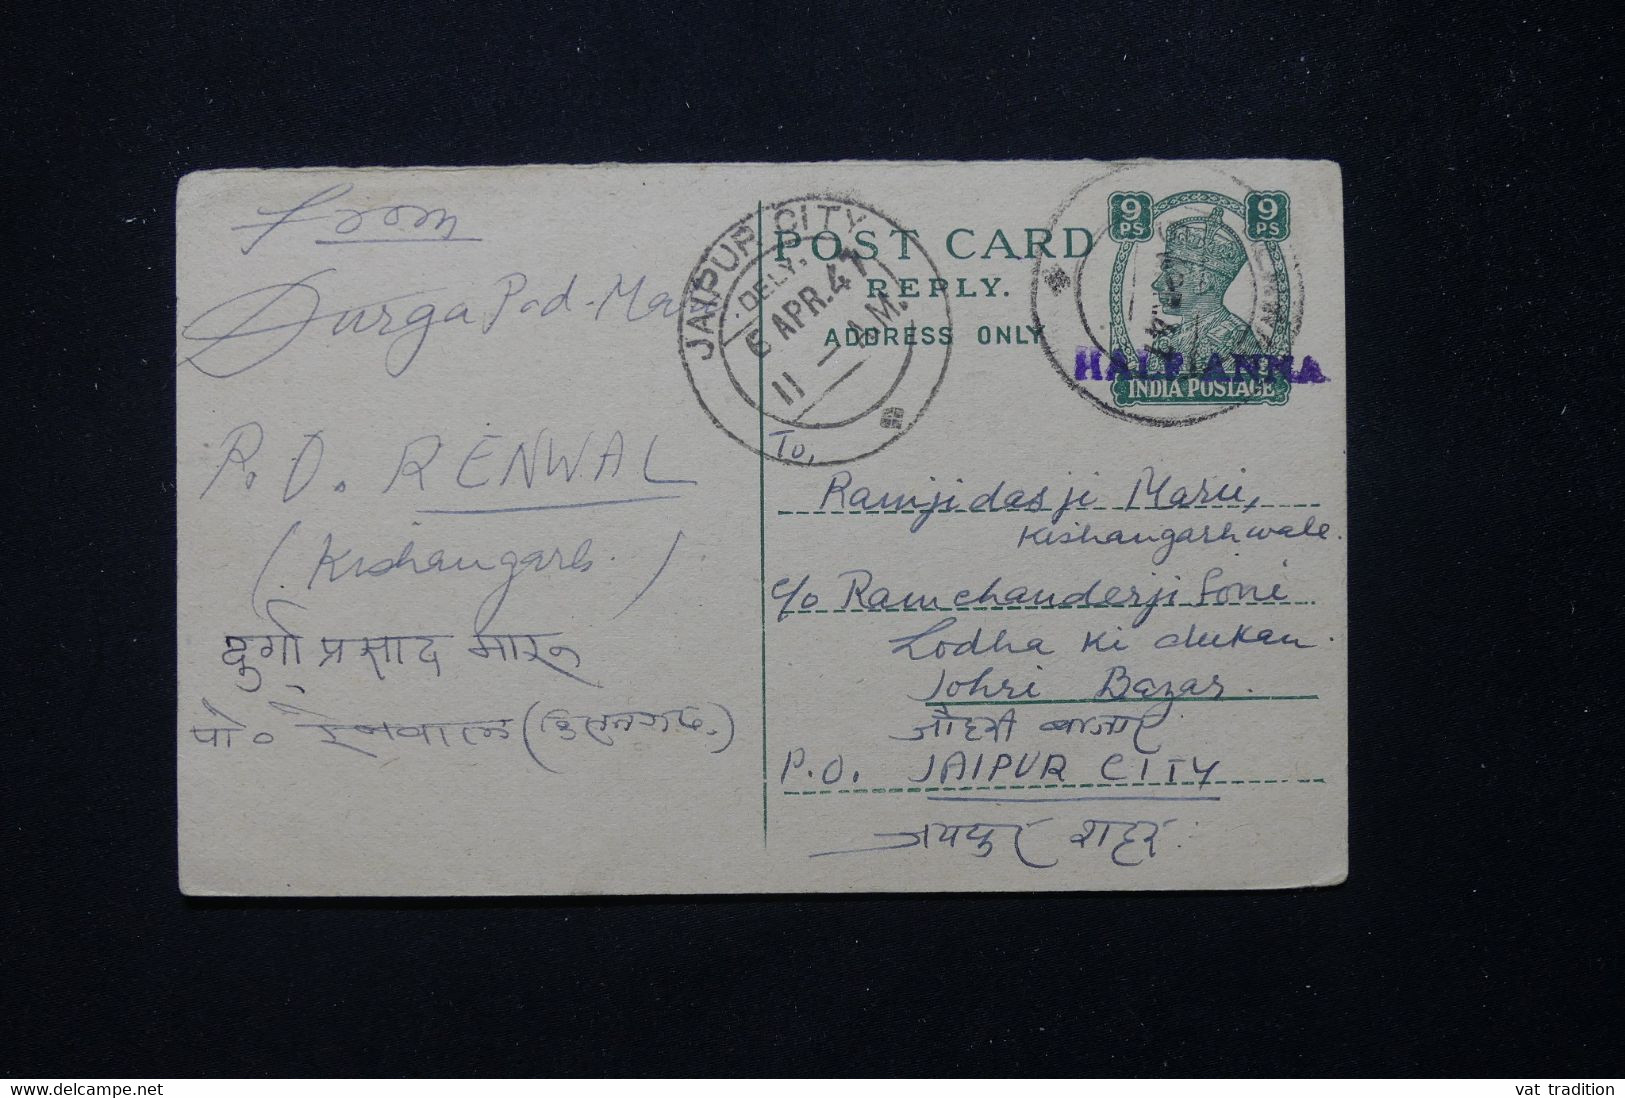 From
Durga Pd. Maru
P.O. RENWAL
(Kishangarh.)
दुर्गा प्रसाद मारू
पो० रेनवाल (किशनगढ.)
JAIPUR CITY
DELY.
6 APR. 47
11 - A.M.
POST CARD
REPLY.
ADDRESS ONLY
9 PS 9 PS
HALF ANNA
INDIA POSTAGE
To,
Ramjidasji Maru,
Kishangarhwale.
c/o Ramchanderji Soni
Lodha Ki dukan.
Johri Bazar.
जौहरी बाजार
P.O. JAIPUR CITY
जयपुर शहर.
vat tradition